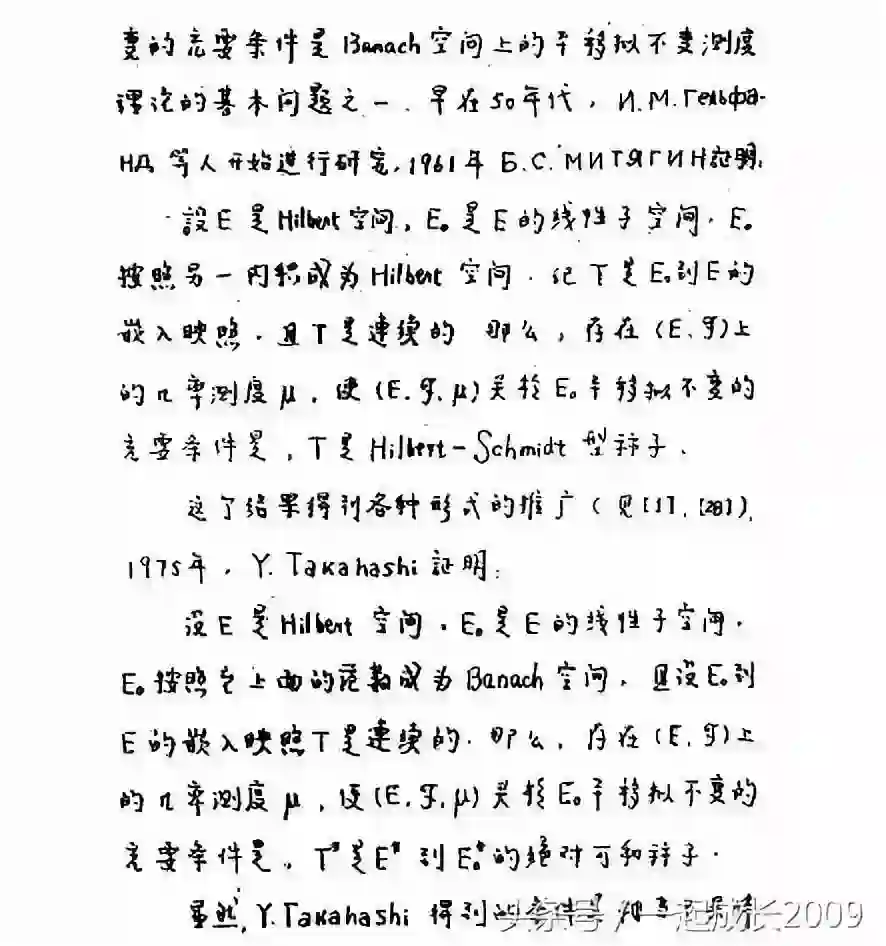 变的充要条件是Banach空间上的平移拟不变测度
理论的基本问题之一.早在50年代,И.М.Гельфа-
нд等人开始进行研究,1961年Б.С.МИТЯГИН証明,
設E是Hilbert空间,E₀是E的线性子空间.E₀
按照另一内积成为Hilbert空间.纪T是E₀到E的
嵌入映照.且T是連续的 那么,存在(E,𝓕)上
的几率測度μ,使(E,𝓕,μ)关於E₀平移拟不变的
充要条件是,T是Hilbert-Schmidt型祘子.
这个结果得到各种形式的推广(见[1],[28]).
1975年,Y.Takahashi証明:
设E是Hilbert空间,E₀是E的线性子空间.
E₀按照它上面的范数成为Banach空间,且设E₀到
E的嵌入映照T是連续的.那么,存在(E,𝓕)上
的几率測度μ,使(E,𝓕,μ)关於E₀平移拟不变的
充要条件是,T*是E*到E₀*的绝对可和祘子.
虽然,Y.Takahashi得到的条件是
头条号/一起成长2009